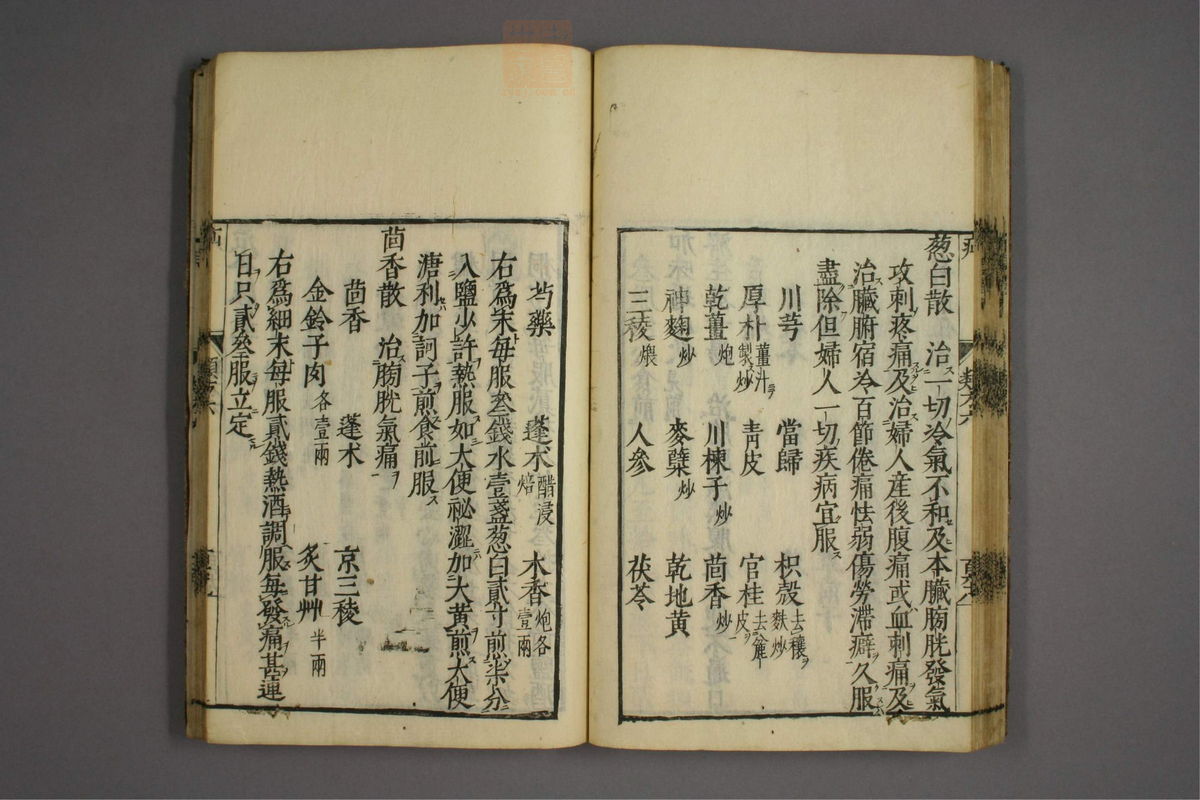 葱白散　治一切冷氣不和及本臟膀胱發氣
攻刺疼痛及治婦人産後腹痛或血刺痛及
治臟腑宿冷百節倦痛怯弱傷勞滯癖久服
盡除但婦人一切疾病宜服
川芎　當歸　枳殻去穰麩炒
厚朴薑汁製炒　青皮　官桂去麄皮
乾薑炮　川楝子炒　茴香炒
神麹炒　麥蘖炒　乾地黄
三稜煨　人參　茯苓
芍藥　蓬朮醋浸焙　木香炮各壹兩
右爲末毎服叄錢水壹盞葱白貳寸煎柒分
入鹽少許熱服如大便祕澀加大黄煎大便
溏利加訶子煎食前服
茴香散　治膀胱氣痛
茴香　蓬朮　京三稜
金鈴子肉各壹兩　炙甘艸半兩
右爲細末毎服貳錢熱酒調服毎發痛甚連
日只貳叄服立定